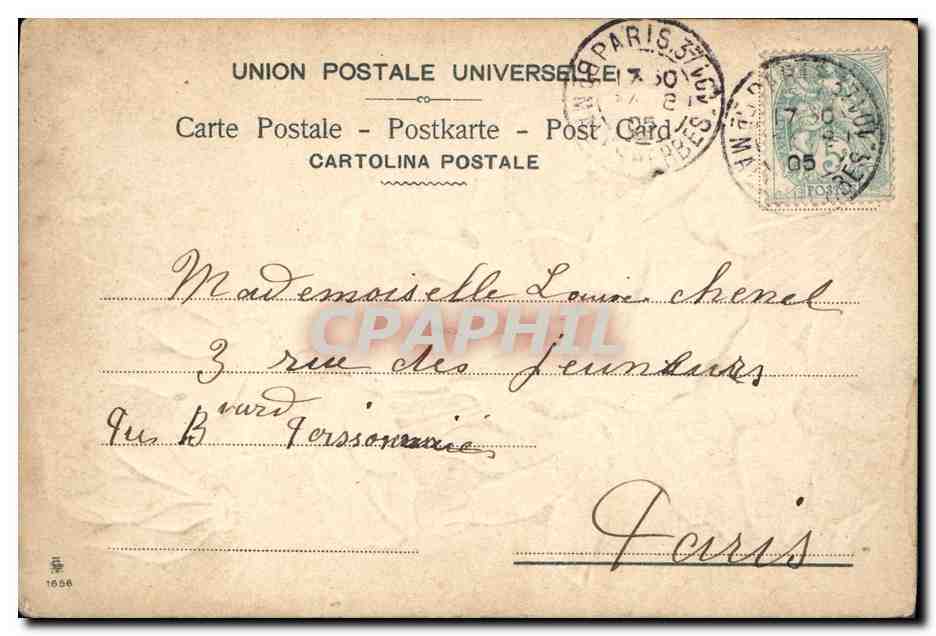 UNION POSTALE UNIVERSELLE
Carte Postale - Postkarte - Post Card
CARTOLINA POSTALE
PARIS
7 30
05
7 30
05
POST
Mademoiselle Louise Chenel
3 rue des Jeuneurs
Bvard Poissonnière
Paris
CPAPHIL
1656